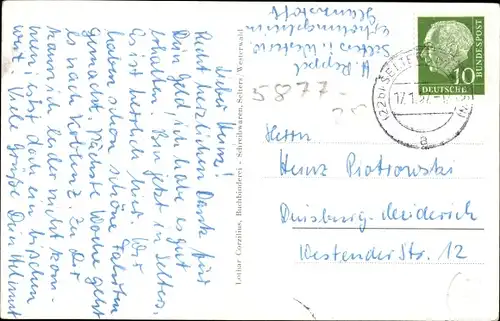 Lieber Heinz!
Recht herzlichen Dank für
Dein Geld, ich habe es gut
erhalten. Bin jetzt in Selters.
Es ist herrlich hier. Wir
haben schon schöne Fahrten
gemacht. Nächste Woche geht
es nach Koblenz. Zu Dir
kann ich leider nicht kom-
men, ist doch ein bisschen
weit. Viele Grüße Dein Helmut
Lothar Corzilius, Buchbinderei - Schreibwaren, Selters/Westerwald
H. Reppel
Selters i. Westerw.
Erholungsheim
Glanzstoff
5877
25
DEUTSCHE
BUNDESPOST
10
(22b) SELTERS
17.1.57
a
Herrn
Heinz Piotrowski
Duisburg-Meiderich
Westender Str. 12